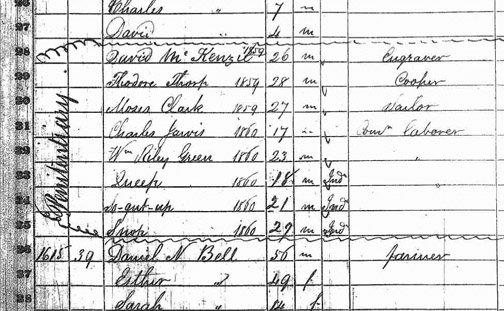 26 Charles " 7 m
27 David " 4 m
28 David McKenzie 1859 26 m Engraver
29 Thodore Thorp 1859 28 m Cooper
30 Moses Clark 1859 27 m Sailor
31 Charles Jarvis 1860 17 " Comn Laborer
32 Wm Riley Green 1860 23 m "
33 Queep 1860 18 m Ind
34 So-gut-up 1860 21 m Ind
35 Snop 1860 29 m Ind
Penitentiary
36 1615 39 Daniel N Bell 56 m farmer
37 Esther " 49 f
38 Sarah " 14 f